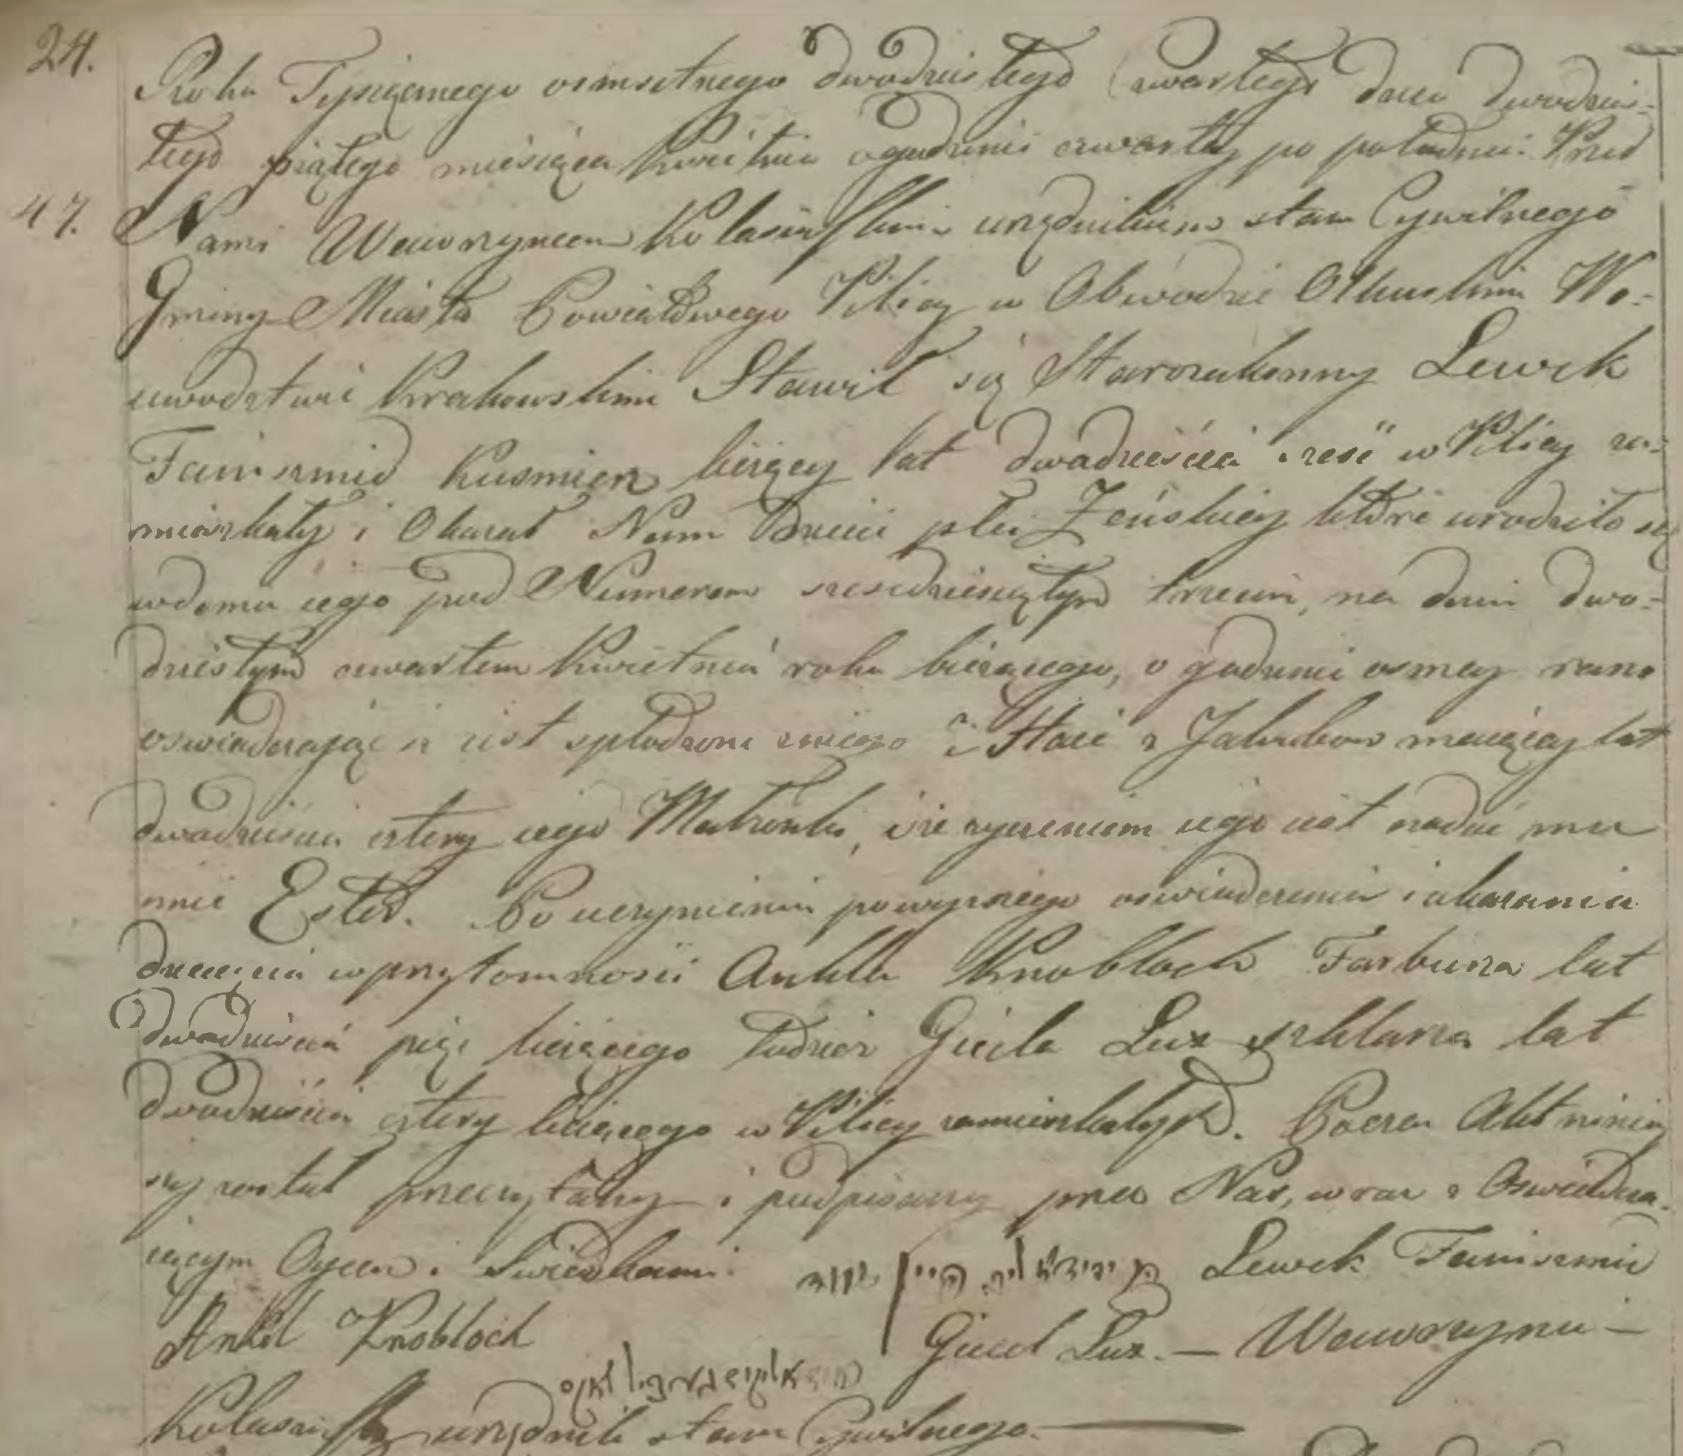 24.
Roku Tysiącznego osmsetnego dwudziestego czwartego dnia dwudzies-
tego piątego miesiąca Kwietnia o godzinie czwartey po południu. Przed
47.
Nami Wawrzyncem Kolasinskim urzędnikiem stanu Cywilnego
Gminy Miasta Powiatowego Pilicy w Obwodzie Olkuskim Wo-
iewodztwie Krakowskim Stawił się Starozakonny Lewek
Fainszmid Kusmierz liczący lat dwadzieścia sześć w Pilicy za-
mieszkały i Okazał Nam Dziecie płci Żeńskiey które urodziło się
w domu iego pod Numerem szescdziesiątym trzecim, na dniu dwu-
dziestym czwartem Kwietnia roku bieżącego, o godzinie osmey rano
oswiadczając iż iest spłodzone z niego i Staci z Jakubow maiącey lat
dwadzieścia cztery iego Małżonki, i że życzeniem iego iest nadać mu
imie Ester. Po uczynieniu powyższego oswiadczenia i okazania
dziecięcia w przytomności Ankla Knobloch Farbierza lat
dwadzieścia pięć liczącego tudzież Giecla Lux szklarza lat
dwadzieścia cztery liczącego w Pilicy zamieszkałych. Poczem Akt niniey-
szy został przeczytany i podpisany przez Nas, wraz z Oswiadcza-
iącym Oycem i Swiadkami. Lewek Fainszmid
Ankel Knobloch Giecel Lux. — Wawrzyniec —
Kolasinski urzędnik stanu Cywilnego.